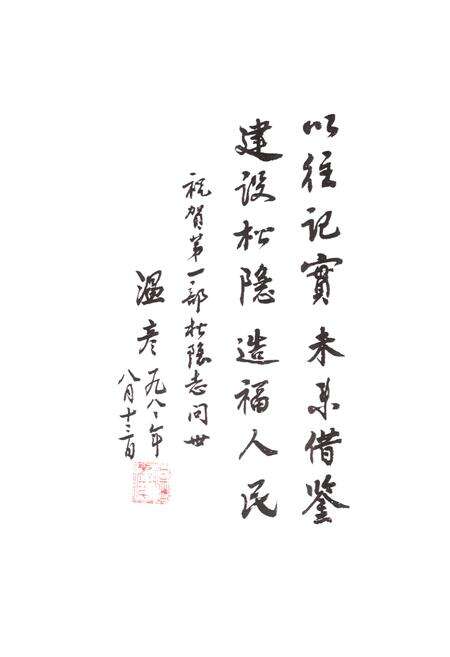 以往记實未来借鉴
建设松隐造福人民
祝賀第一部松隐志问世
温彦 一九八八年
八月十三日